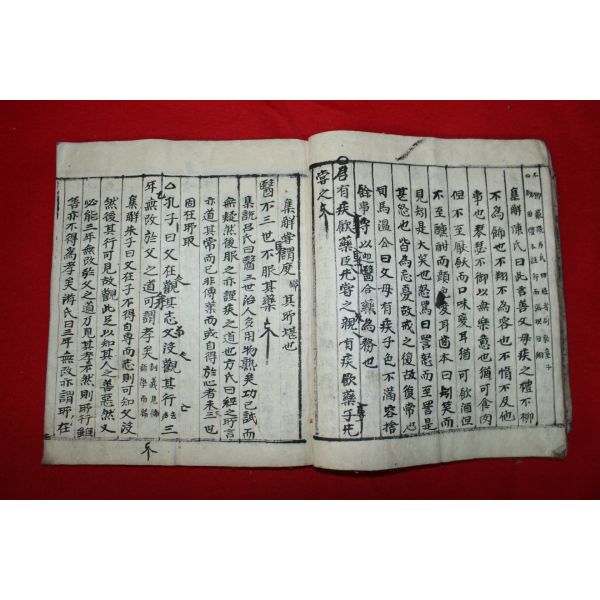 集解陳氏曰此言善父母疾之禮不櫛
不為飾也不翔不為容也不惰不及他
事也琴瑟不御以無樂意也猶可食肉
但不至厭飫而口味變耳猶可飲酒但
不至醺酣而顔色變耳齒本曰矧笑而
見矧是大笑也怒罵曰詈怒而至詈是
甚怒也皆為忘憂故戒之復故復常也
司馬溫公曰父母有疾子色不滿容捨
餘事專以迎醫合藥為務也
君有疾飮藥臣先嘗之親有疾飮藥子先
嘗之
集解嘗謂度其所堪也
醫不三世不服其藥
集說呂氏曰醫三世治人多用物熟矣功已試而
無疑然後服之亦謹疾之道也方氏曰經之所言
亦道其常而已非傳業而或自得於心者未三世
固在所取
孔子曰父在觀其志父沒觀其行三
年無改於父之道可謂孝矣
集解朱子曰父在子不得自專而志則可知父沒
然後其行可見故觀此足以知其人之善惡然又
必能三年無改於父之道乃見其孝不然則所行雖
善亦不得為孝矣游氏曰三年無改亦謂所在